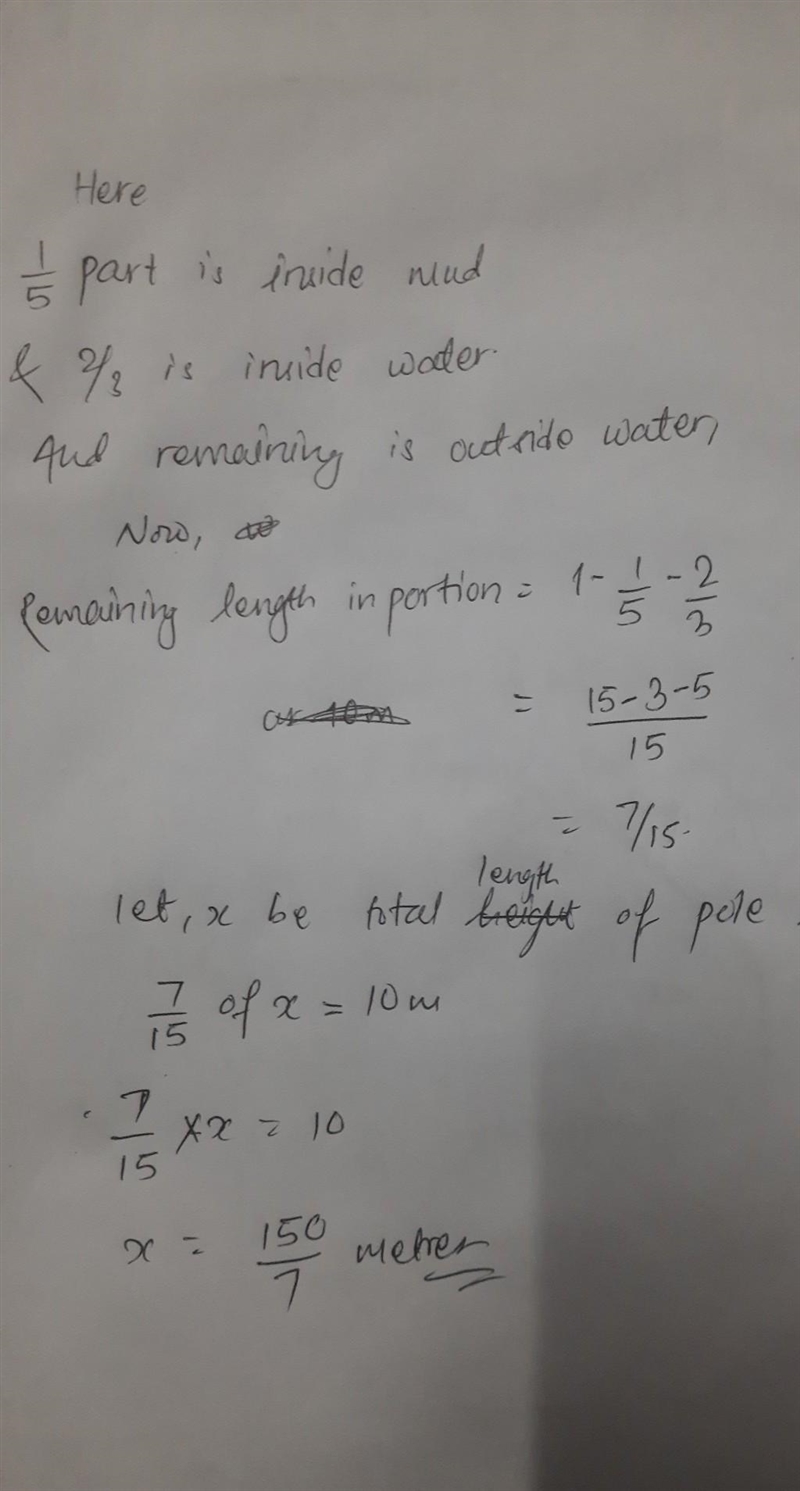 Here
1/5 part is inside mud
& 2/3 is inside water.
And remaining is outside water,
Now,
Remaining length in portion = 1 - 1/5 - 2/3
= (15-3-5)/15
= 7/15.
let, x be total length of pole.
7/15 of x = 10m
7/15 × x = 10
x = 150/7 metres